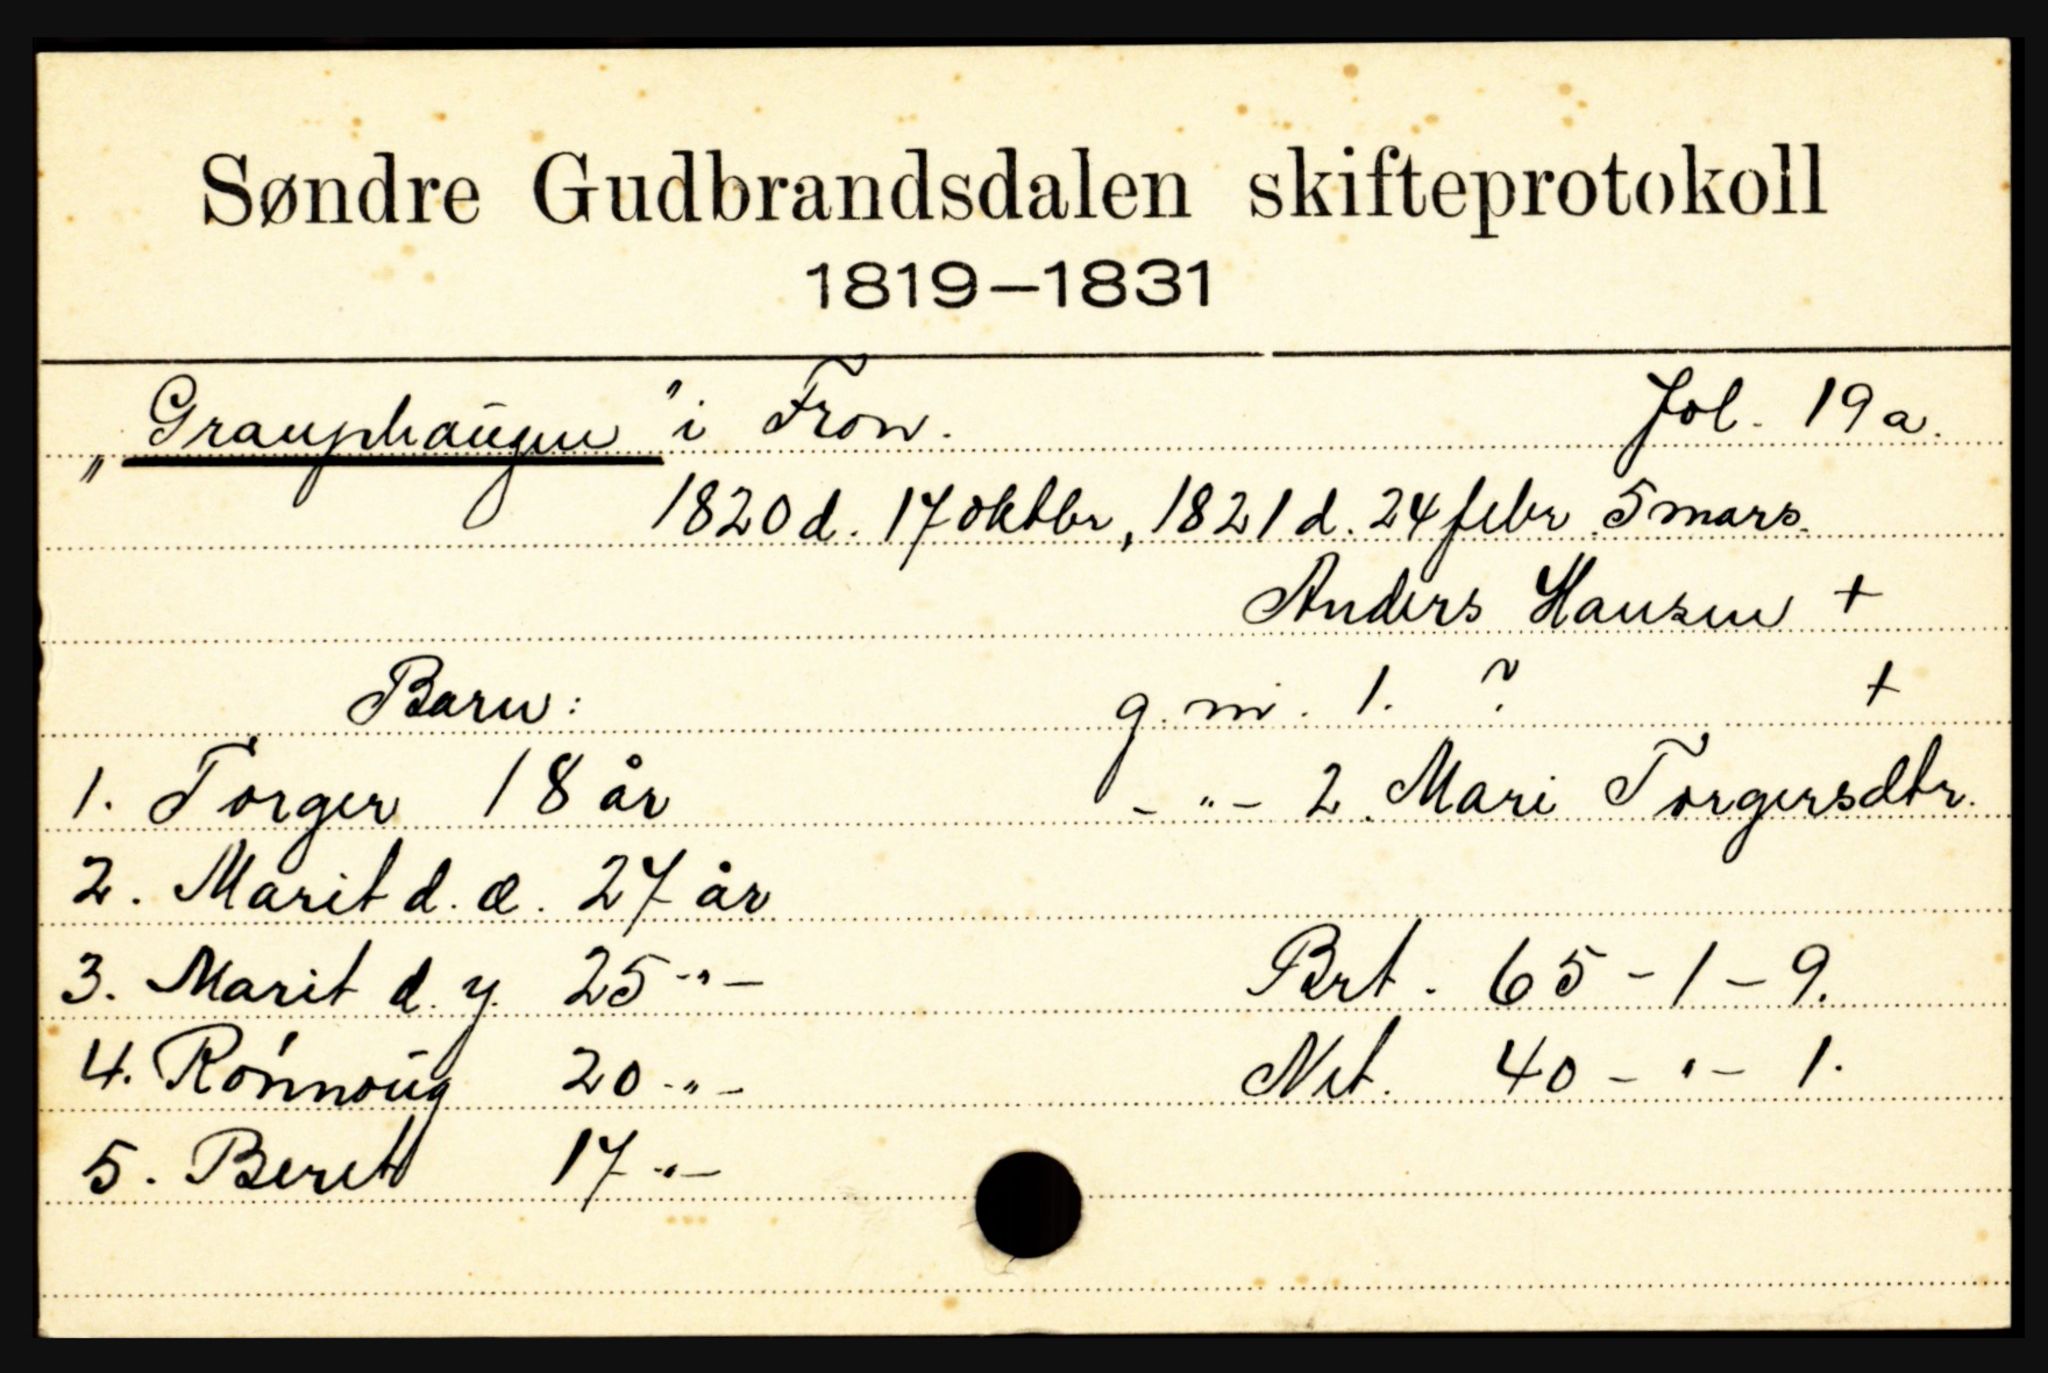 Søndre Gudbrandsdalen skifteprotokoll
1819–1831
„Grauphaugen" i Fron. Fol. 19a.
1820 d. 17 oktbr, 1821 d. 24 febr. 5 mars.
Anders Hansen +
Barn: g. m. 1. ? +
1. Torger 18 år - " - 2. Mari Torgersdtr.
2. Marit d. e. 27 år
3. Marit d. y. 25 - " - Brt. 65 - 1 - 9.
4. Rønnoug 20 - " - Net. 40 - " - 1.
5. Beret 17 - " -